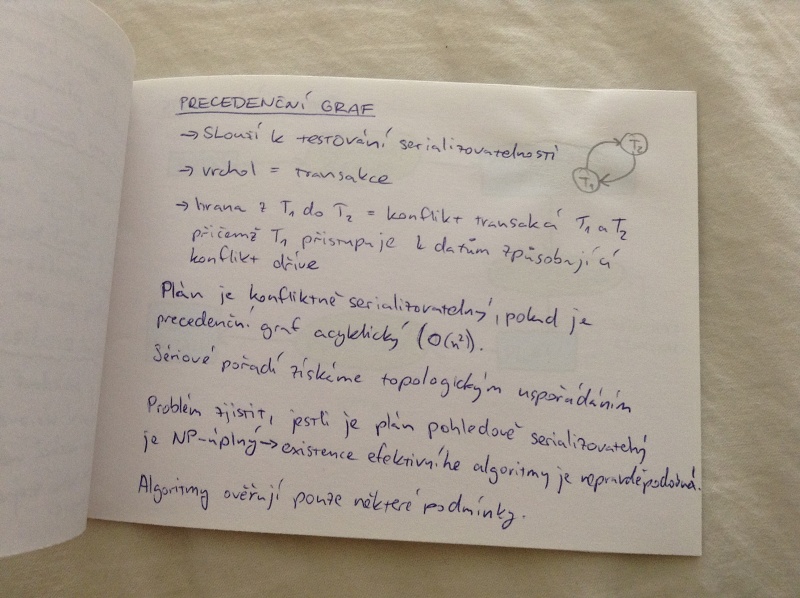 PRECEDENČNÍ GRAF
→ SLOUŽÍ K TESTOVÁNÍ serializovatelnosti
→ vrchol = transakce
→ hrana z T1 do T2 = konflikt transakcí T1 a T2
přičemž T1 přistupuje k datům způsobující
konflikt dříve
T2
T1
Plán je konfliktně serializovatelný, pokud je
precedenční graf acyklický (O(n²)).
Sériové pořadí získáme topologickým uspořádáním
Problém zjistit, jestli je plán pohledově serializovatelný
je NP-úplný → existence efektivního algoritmy je nepravděpodobná.
Algoritmy ověřují pouze některé podmínky.